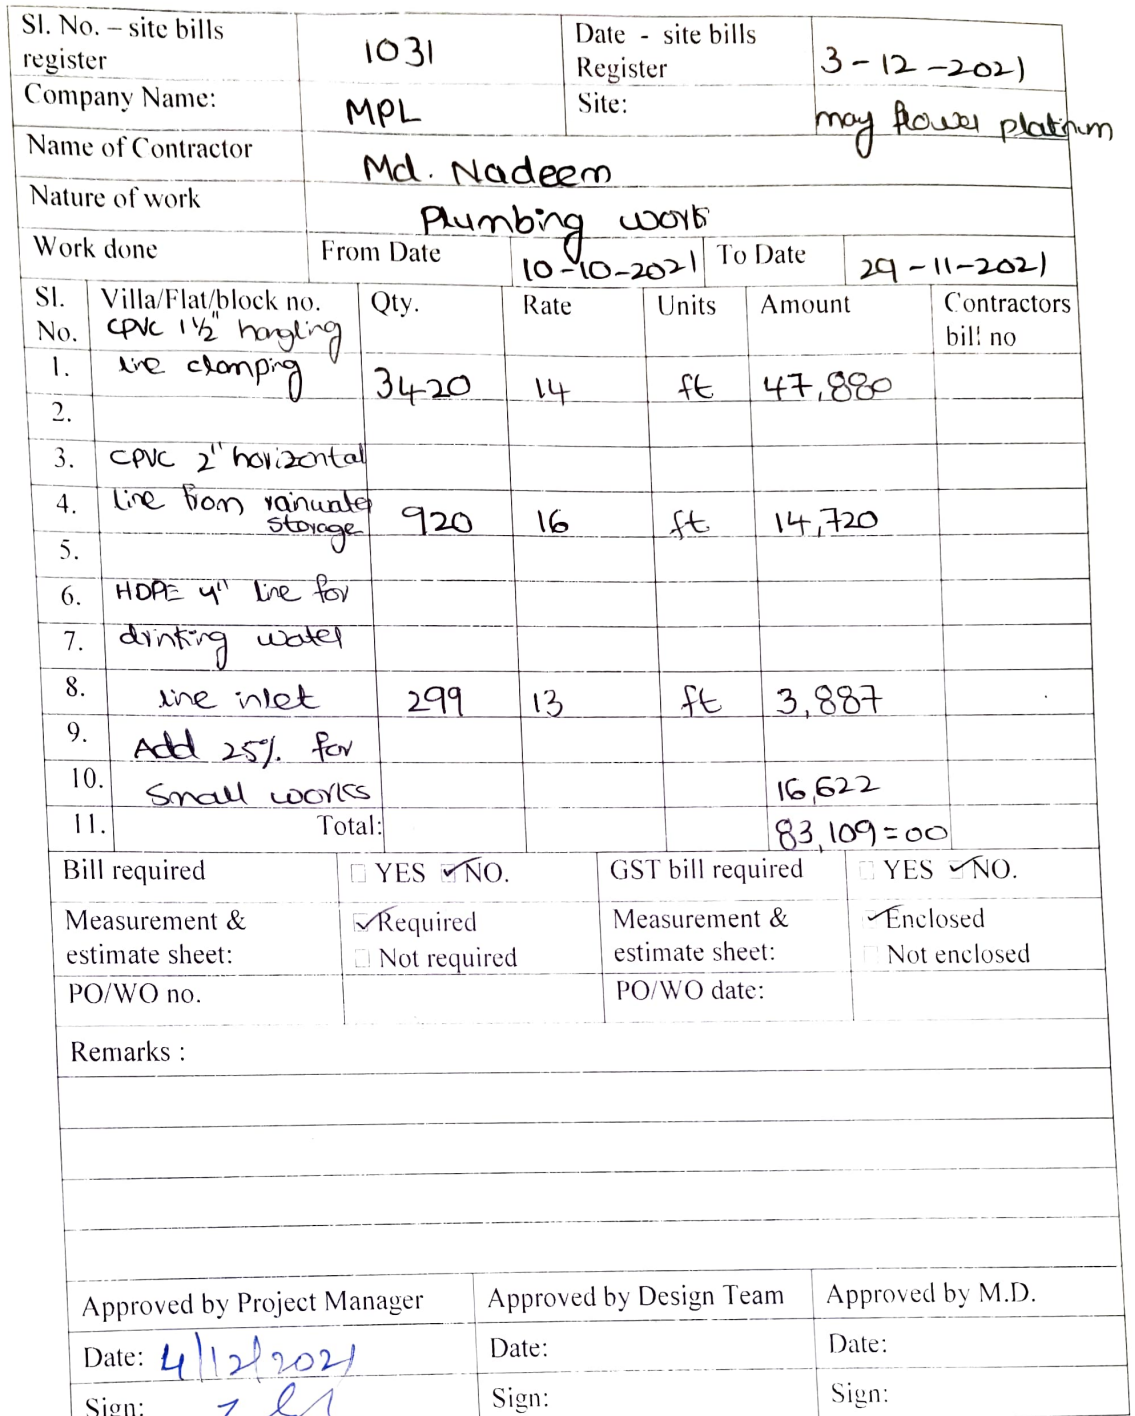 Sl. No. – site bills register 1031 Date - site bills Register 3-12-2021
Company Name: MPL Site: may flower platinum
Name of Contractor Md. Nadeem
Nature of work Plumbing work
Work done From Date 10-10-2021 To Date 29-11-2021
Sl. No. Villa/Flat/block no. Qty. Rate Units Amount Contractors bill no
CPVC 1½" hangling
1. line clamping 3420 14 ft 47,880
2.
3. CPVC 2" horizontal
4. line from rainwater storage 920 16 ft 14,720
5.
6. HDPE 4" line for
7. drinking water
8. line inlet 299 13 ft 3,887
9. Add 25% for
10. Small works 16,622
11. Total: 83,109=00
Bill required YES ✓NO. GST bill required YES ✓NO.
Measurement & estimate sheet: ✓Required Not required Measurement & estimate sheet: ✓Enclosed Not enclosed
PO/WO no. PO/WO date:
Remarks :
Approved by Project Manager Approved by Design Team Approved by M.D.
Date: 4/12/2021 Date: Date:
Sign: Sign: Sign: